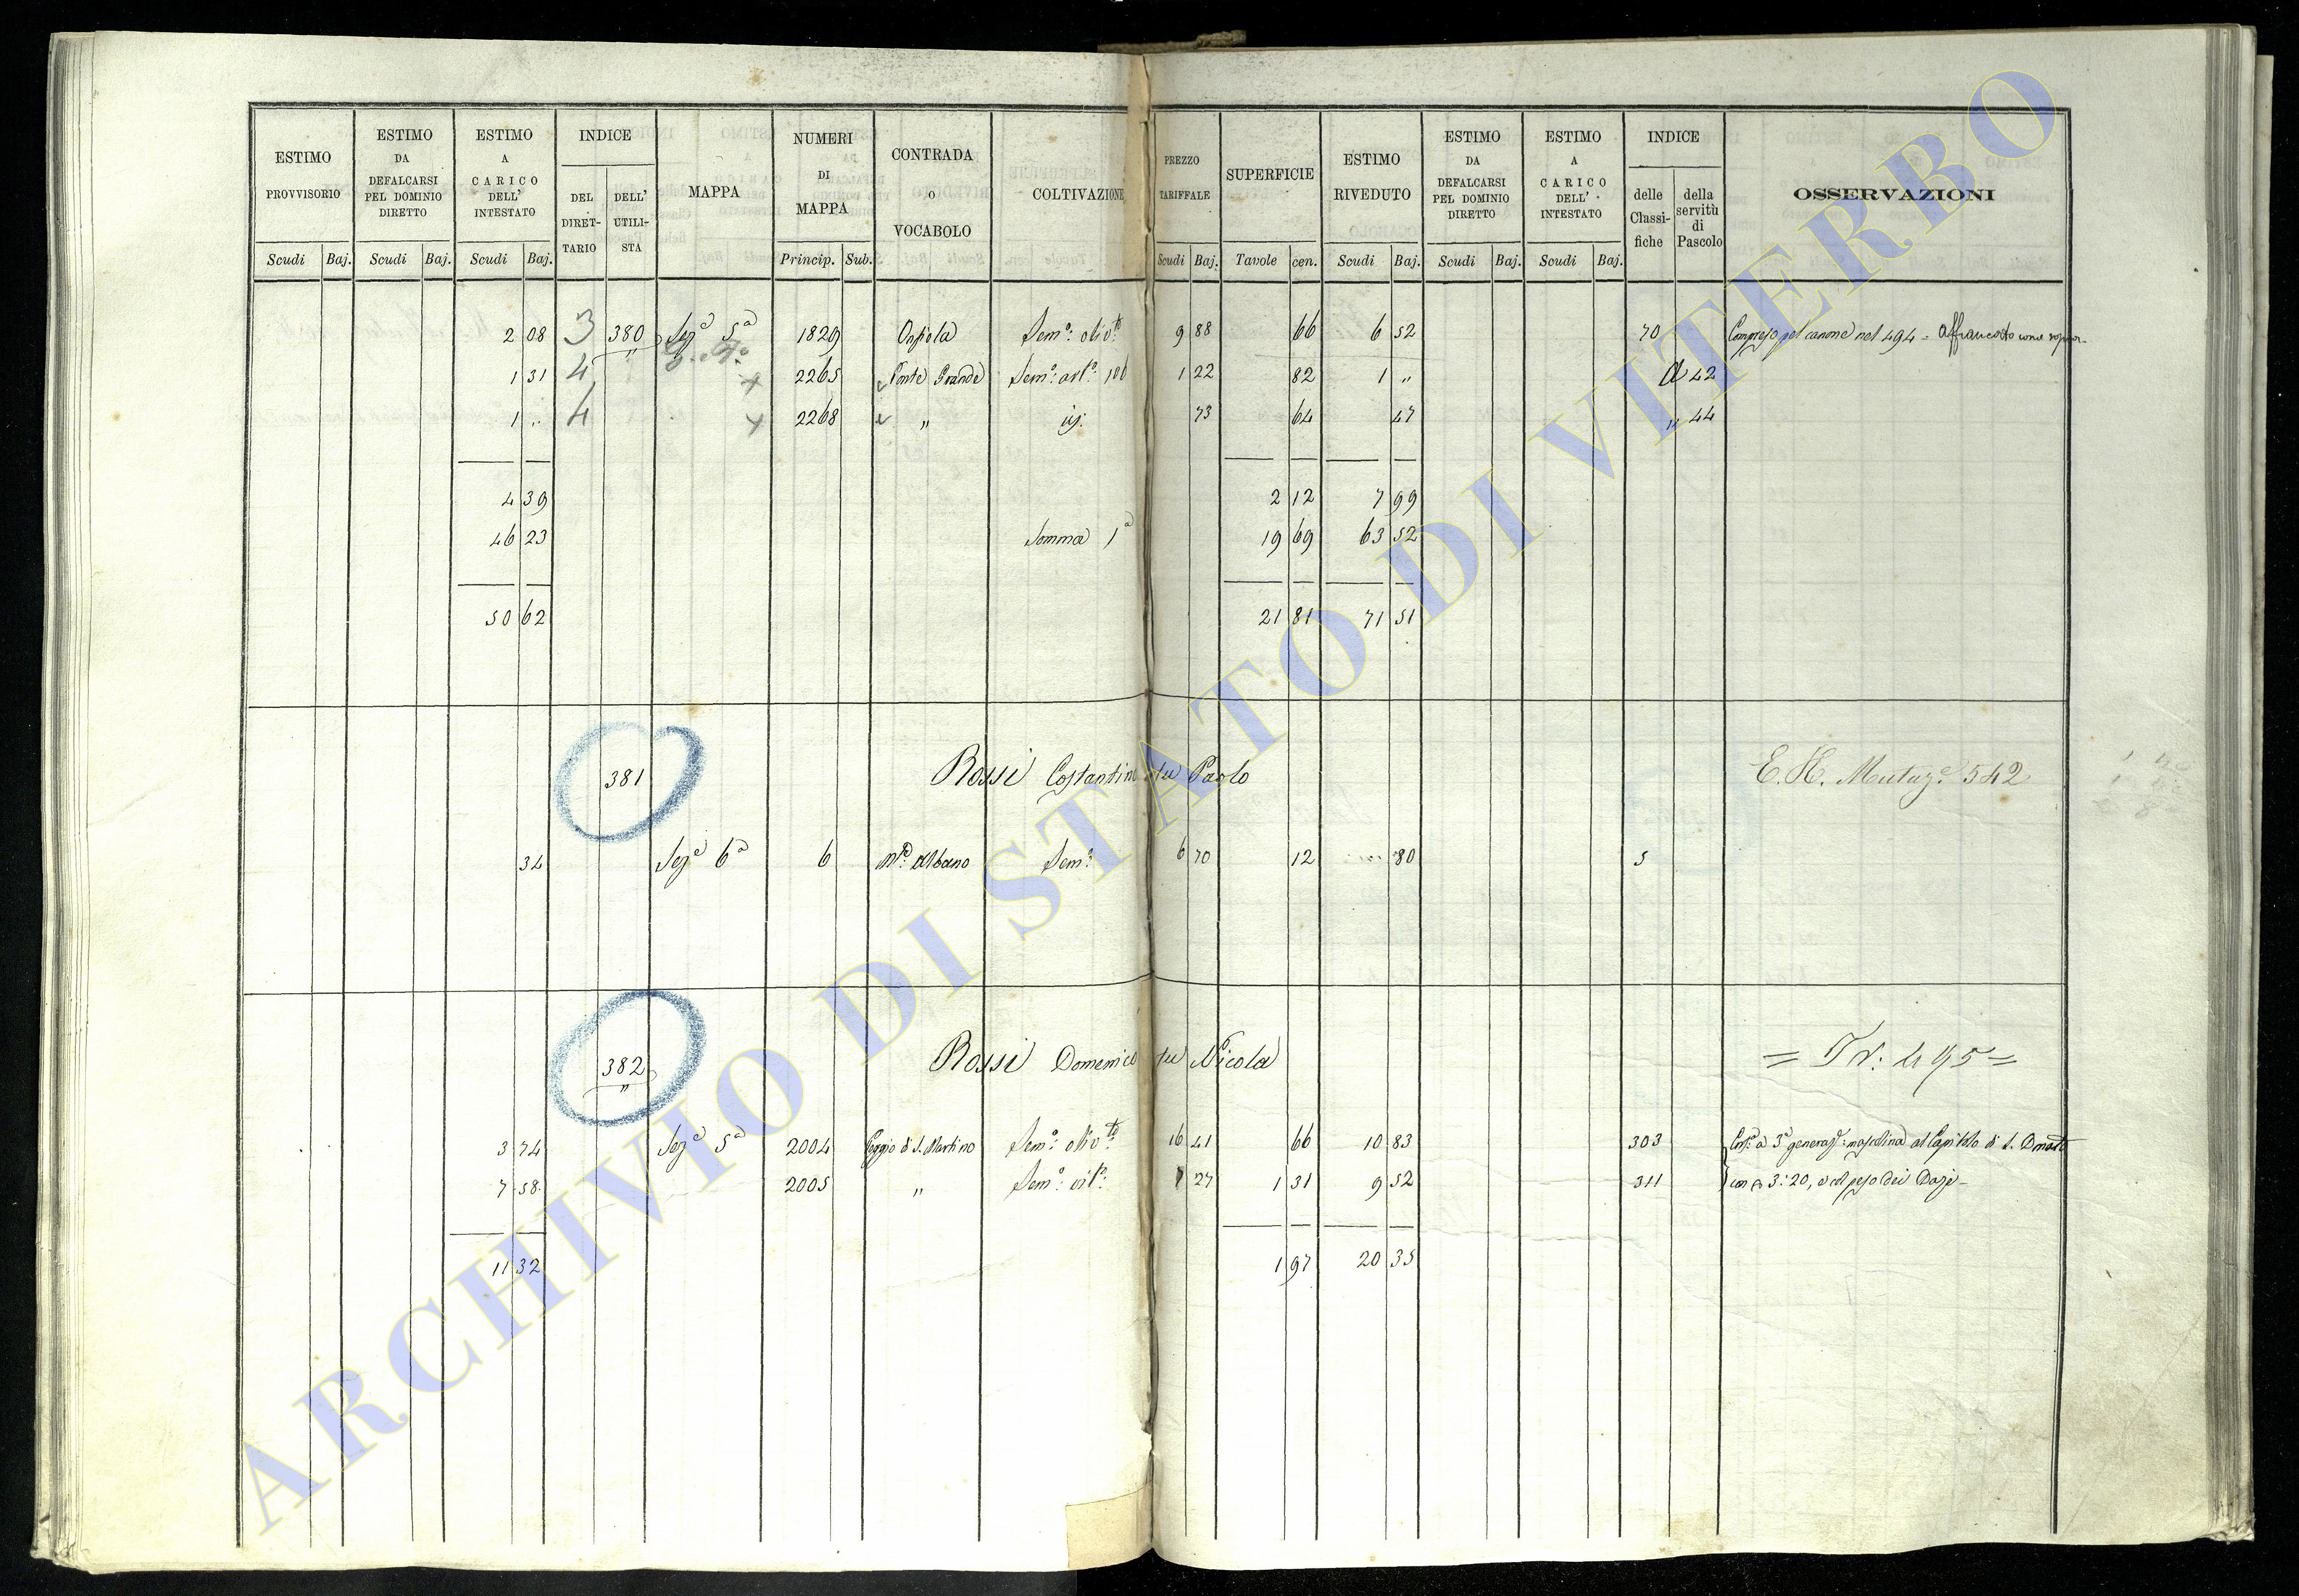 ESTIMO PROVVISORIO
ESTIMO DA DEFALCARSI PEL DOMINIO DIRETTO
ESTIMO A CARICO DELL' INTESTATO
INDICE
DEL DIRETTARIO
DELL' UTILISTA
MAPPA
NUMERI DI MAPPA
CONTRADA O VOCABOLO
COLTIVAZIONE
PREZZO TARIFFALE
SUPERFICIE
ESTIMO RIVEDUTO
ESTIMO DA DEFALCARSI PEL DOMINIO DIRETTO
ESTIMO A CARICO DELL' INTESTATO
INDICE
delle Classifiche
della servitù di Pascolo
OSSERVAZIONI
Scudi Baj. Scudi Baj. Scudi Baj. Princip. Sub. Scudi Baj. Tavole cen. Scudi Baj. Scudi Baj. Scudi Baj.
2 08 3 380 Sez.a 5a 1829 Ospiola Sem.o oliv.to 9 88 66 6 52 70 Compreso pel canone nel 494 = affrancato come sopra
1 31 4 " 2265 Ponte Grande Sem.o 1 22 82 1 " A 42
1 " 4 2268 " 73 64 47 " 44
4 39 2 12 7 99
46 23 Somma 1a 19 69 63 52
50 62 21 81 71 51
381 Rossi Costantino fu Paolo E. H. Mutaz.e 542
34 Sez.a 6a 6 M.te Albano Sem.o 6 70 12 80 5
382 Rossi Domenico fu Nicola = Tr: 495 =
"
3 74 Sez.a 5a 2004 Poggio di S. Martino Sem.o oliv.to 16 41 66 10 83 303 a 3a generaz.e mascolina al Capitolo di S. Donato
7 58 2005 " Sem.o vit.o 7 27 1 31 9 52 311 con 3:20, e col peso dei Dazi
11 32 1 97 20 35
ARCHIVIO DI STATO DI VITERBO